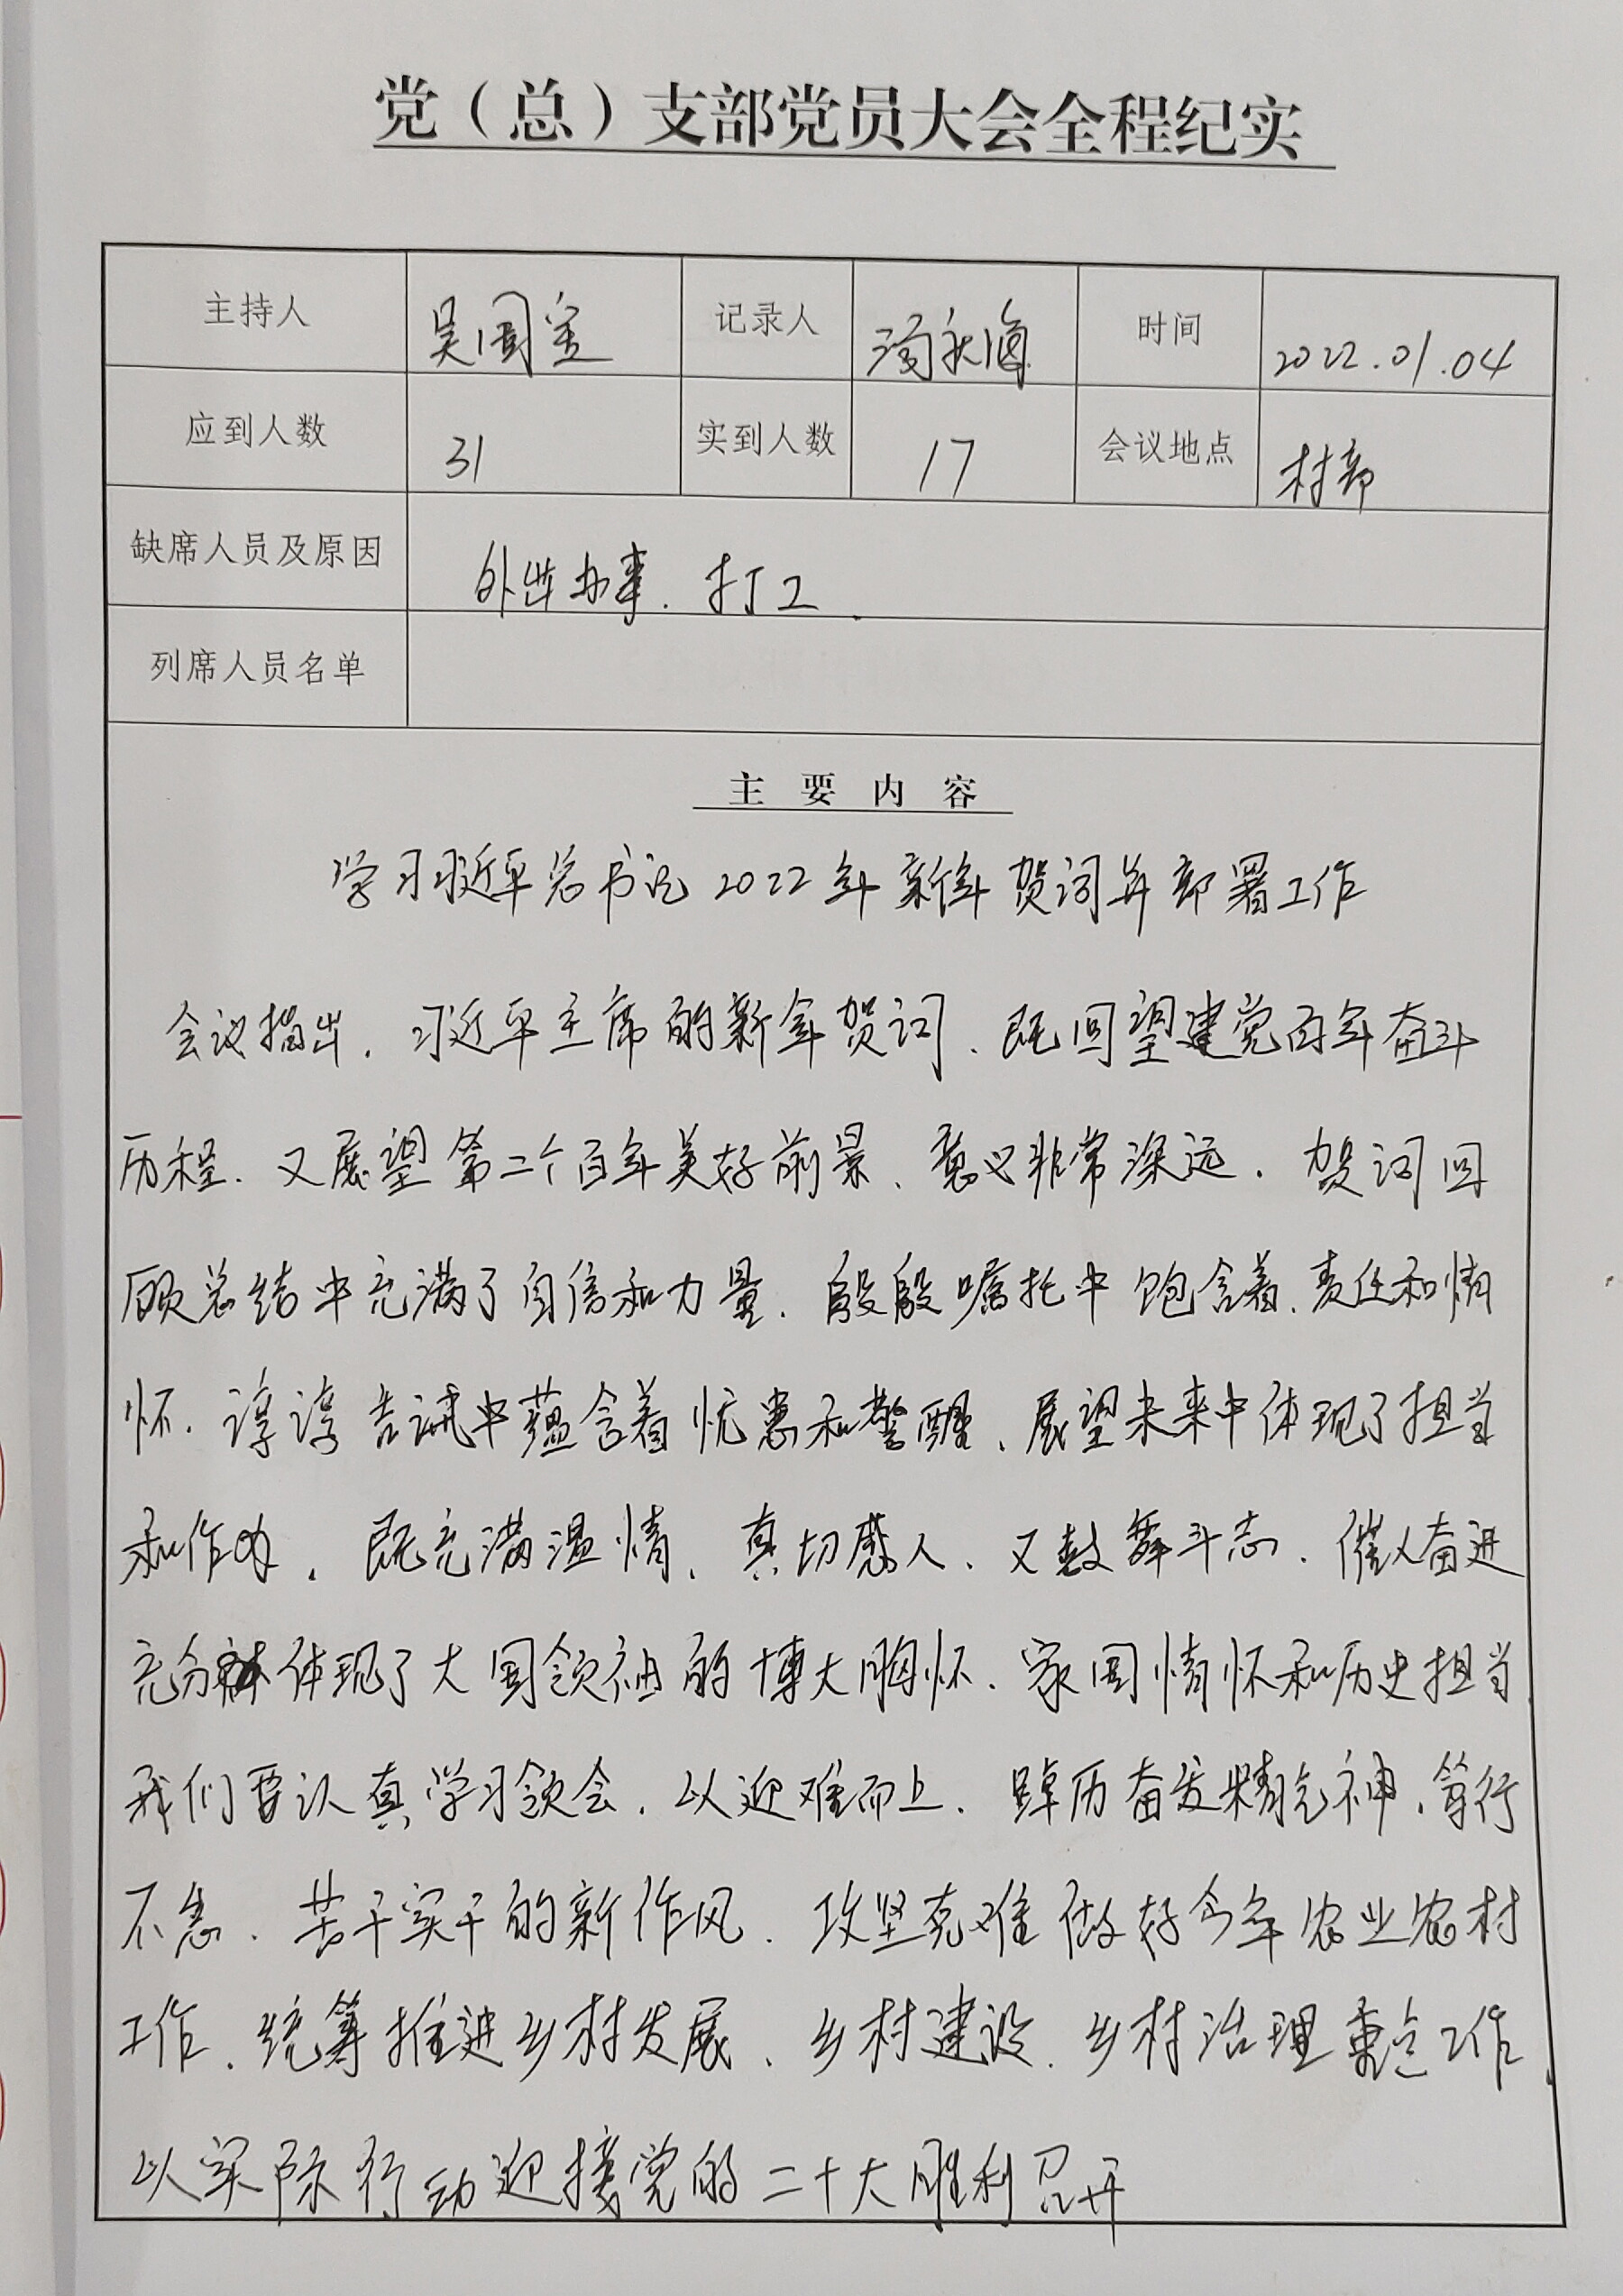 党（总）支部党员大会全程纪实
主持人 吴国宝 记录人 时间 2022.01.04
应到人数 31 实到人数 17 会议地点 村部
缺席人员及原因 外出办事、打工.
列席人员名单
主要内容
学习习近平总书记2022年新年贺词并部署工作
会议指出，习近平主席的新年贺词、既回望建党百年奋斗
历程、又展望第二个百年美好前景、意义非常深远. 贺词回
顾总结中充满了自信和力量、殷殷嘱托中饱含着、责任和情
怀、谆谆告诫中蕴含着忧患和警醒、展望未来中体现了担当
和作为. 既充满温情、真切感人、又鼓舞斗志、催人奋进
充分体现了大国领袖的博大胸怀、家国情怀和历史担当.
我们要认真学习领会. 以迎难而上、踔厉奋发精气神、笃行
不怠、苦干实干的新作风、攻坚克难做好今年农业农村
工作、统筹推进乡村发展、乡村建设、乡村治理重点工作、
以实际行动迎接党的二十大胜利召开